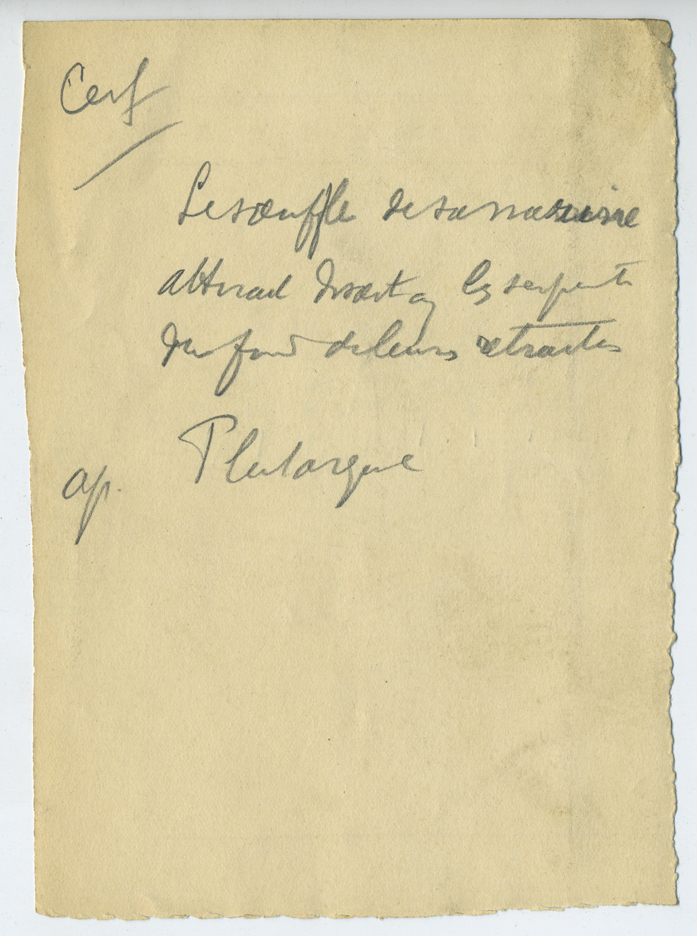 Cerf
Le souffle de sa narine
attirait les serpents
du fond de leurs retraites
ap. Plutarque